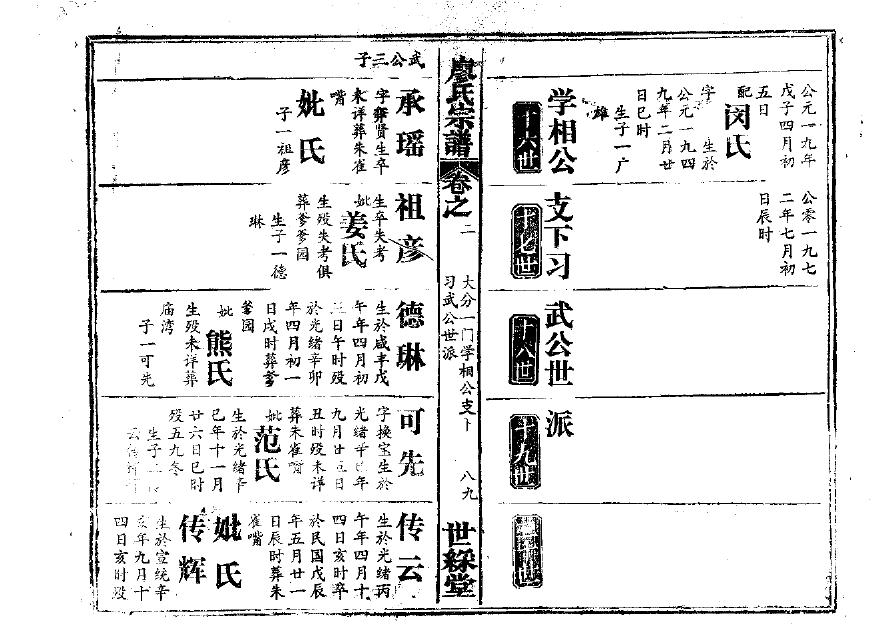 公元一九年
戊子四月初
五日
配闵氏
字 生於
公元一九四
九年二月廿
日巳时
生子一广
雄
公零一九七
二年七月初
日辰时
学相公支下习武公世派
十六世
十七世
十八世
十九世
廖氏宗譜
卷之二
大分一门学相公支下
习武公世派
八九
世綵堂
武公三子
承瑶
贤生卒
未详葬朱雀
嘴
妣氏
子一祖彦
祖彦
生卒失考
妣姜氏
生殁失考俱
葬爹爹园
生子一德
琳
德琳
生於咸丰戊
午年四月初
三日午时殁
於光绪辛卯
年四月初一
日戌时葬爹
爹园
妣熊氏
生殁未详葬
庙湾
子一可先
可先
字换宝生於
光绪辛巳年
九月廿五日
丑时殁未详
葬朱雀嘴
妣范氏
生於光绪辛
巳年十一月
廿六日巳时
殁五九冬
生子二
传云
生於光绪丙
午年四月十
四日亥时卒
於民国戊辰
年五月廿一
日辰时葬朱
雀嘴
妣氏
传辉
生於宣统辛
亥年九月十
四日亥时殁